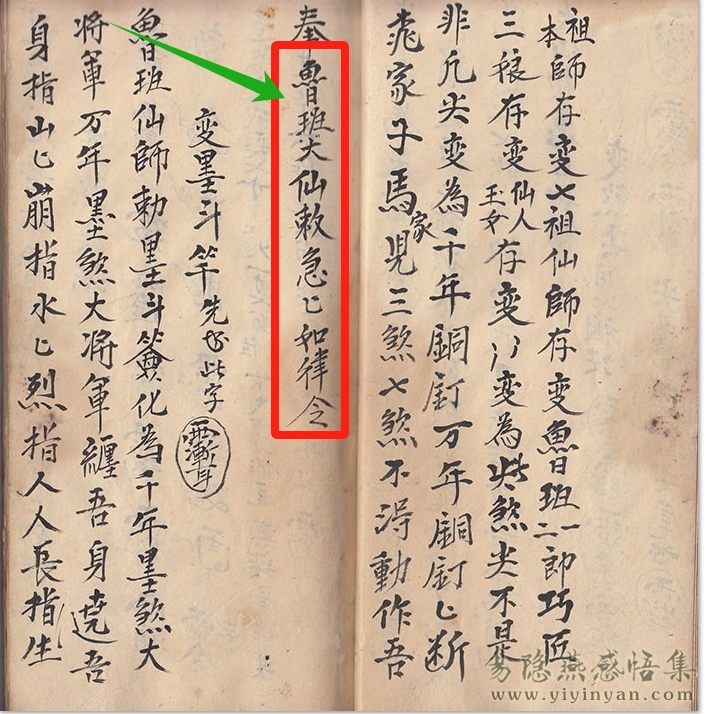 祖本師存変七祖仙師存変魯班一二郎巧匠
三娘存変仙人玉女存変〻変為煞尖不是
非凡尖変為千年銅釘万年銅釘匕断
家子馬家見三煞七煞不淂動作吾
奉魯班大仙敕急匕如律令
変墨斗竿先書此字
魯班仙師勅墨斗簽化為千年墨煞大
将軍万年墨煞大将軍纏吾身遶吾
身指山匕崩指水匕烈指人人長指生
易隐燕感悟集
www.yiyinyan.com